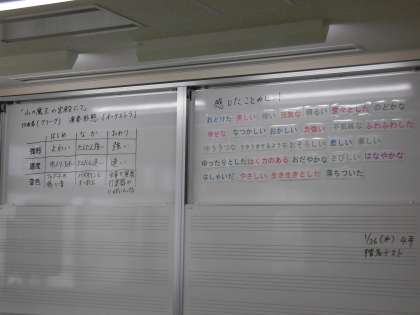 "山の魔王の宮殿にて"
作曲者「グリーグ」 演奏形態「オーケストラ」
はじめ なか おわり
強弱 よわい だんだん強く 強い
速度 だんだん速く 速い
音色
感じたことめし!
おどけた 美しい 暗い 元気な 明るい 堂々とした のどかな
幸せな なつかしい おかしい 力強い 不気味な ふわふわした
ゆううつな うきうきするような おそろしい 悲しい 楽しい
ゆったりとした はく力のある おだやかな さびしい はなやかな
はしゃいだ やさしい 生き生きとした 落ちついた
1/26(木) 4年
テスト